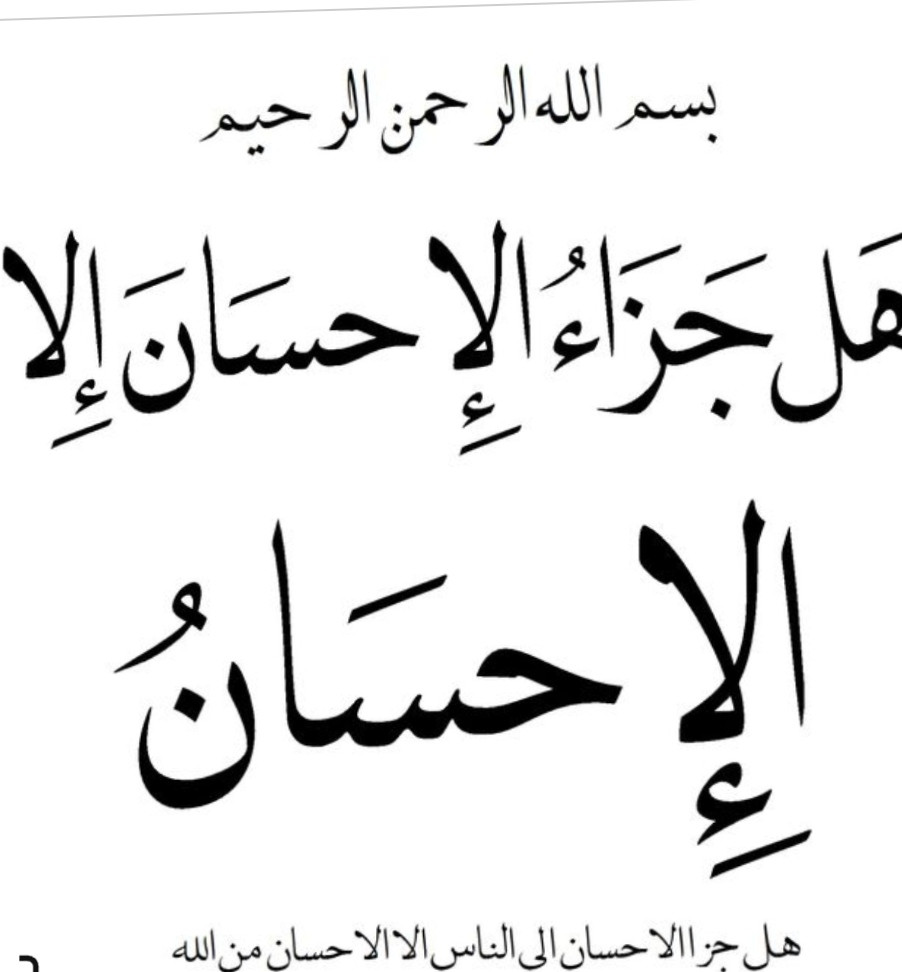 بسم الله الرحمن الرحيم
هَل جَزَاءُ الإِحسَانَ إِلا
الإِحسَانُ
هل جزا الاحسان الى الناس الا الاحسان من الله